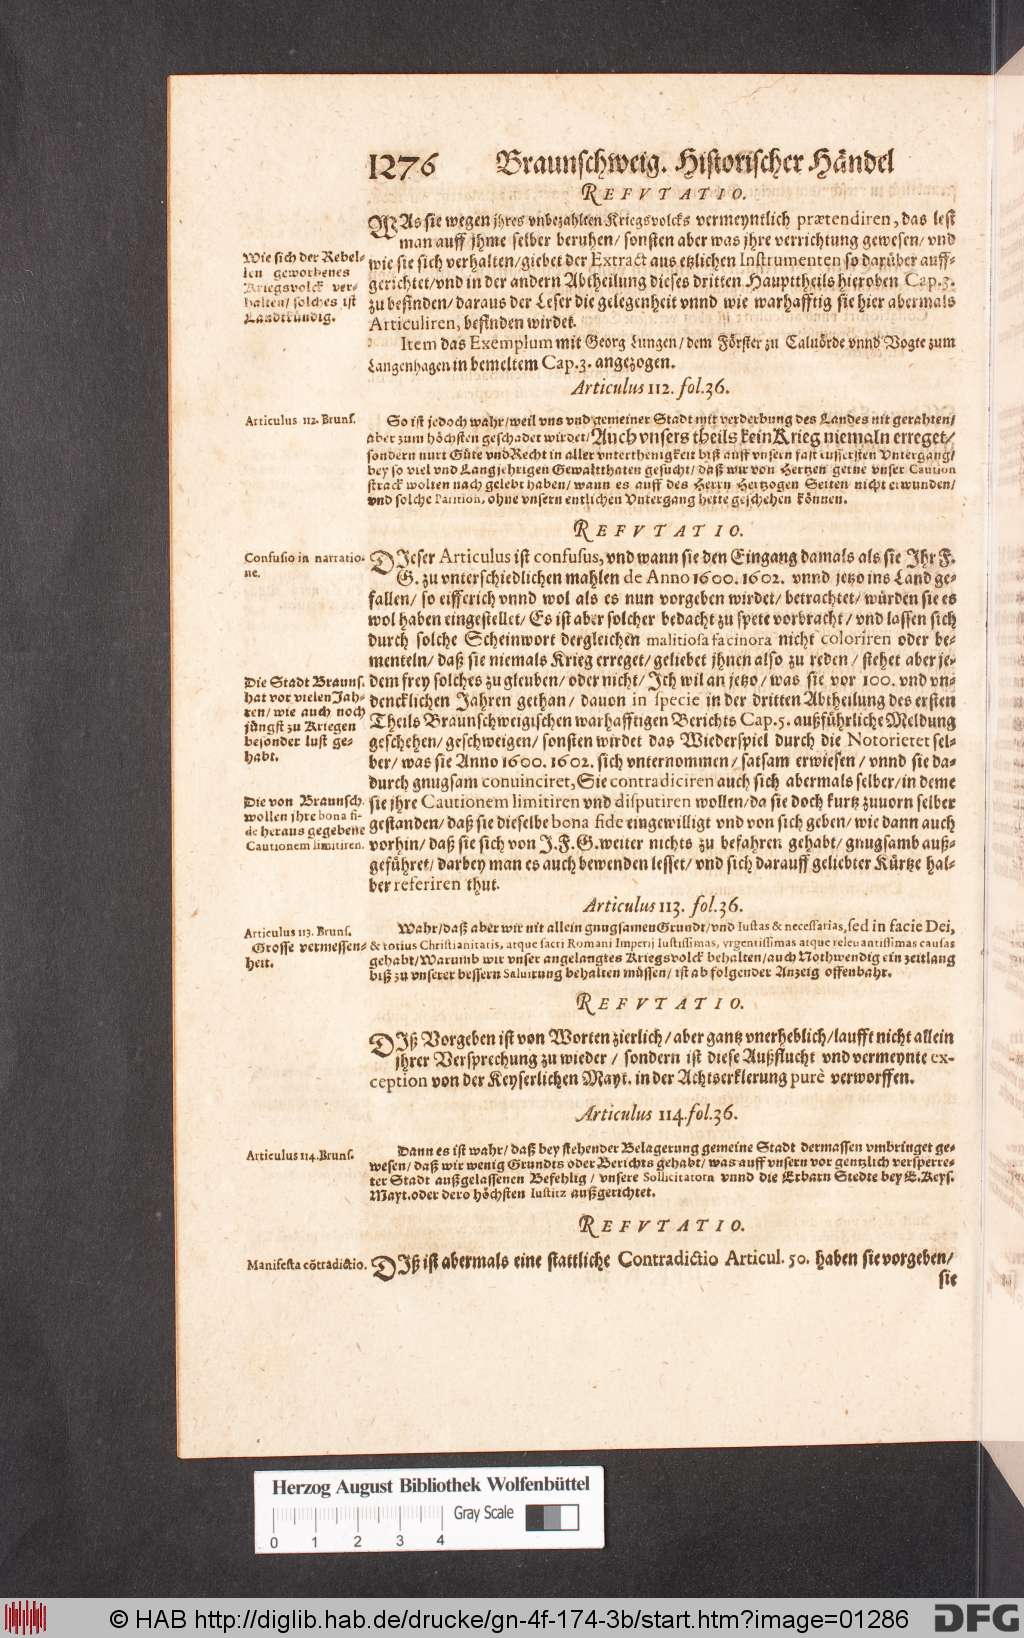 1276 Braunschweig. Historischer Händel
REFVTATIO.
WAs sie wegen jhres vnbezahlten Kriegsvolcks vermeyntlich prætendiren, das lest
man auff jhme selber beruhen/ sonsten aber was jhre verrichtung gewesen/ vnd
wie sie sich verhalten/ giebet der Extract aus etzlichen Instrumenten so darüber auff-
gerichtet/ vnd in der andern Abtheilung dieses dritten Haupttheils hieroben Cap. 3.
zu befinden/ daraus der Leser die gelegenheit vnnd wie warhafftig sie hier abermals
Articuliren, befinden wirdet.
Wie sich der Rebel-
len geworbenes
Kriegsvolck ver-
halten/ solches ist
Landtkündig.
Item das Exemplum mit Georg Lungen/ dem Förster zu Caluörde vnnd Vogte zum
Langenhagen in bemeltem Cap. 3. angezogen.
Articulus 112. fol. 36.
Articulus 112. Bruns.
So ist jedoch wahr/ weil vns vnd gemeiner Stadt mit verderbung des Landes nit gerahten/
aber zum höchsten geschadet wirdet/ Auch vnsers theils kein Krieg niemaln erreget/
sondern nurt Güte vnd Recht in aller vnterthenigkeit biß auff vnsern fast eussersten Vntergang/
bey so viel vnd Langjehrigen Gewaltthaten gesucht/ daß wir von Hertzen gerne vnser Caution
strack wolten nach gelebt haben/ wann es auff des Herrn Hertzogen Seiten nicht erwunden/
vnd solche Parition, ohne vnsern entlichen Vntergang hette geschehen können.
REFVTATIO.
Confusio in narratio-
ne.
DIeser Articulus ist confusus, vnd wann sie den Eingang damals als sie Ihr F.
G. zu vnterschiedlichen mahlen de Anno 1600. 1602. vnnd jetzo ins Land ge-
fallen/ so eifferich vnnd wol als es nun vorgeben wirdet/ betrachtet/ würden sie es
wol haben eingestellet/ Es ist aber solcher bedacht zu spete vorbracht/ vnd lassen sich
durch solche Scheinwort dergleichen malitiosa facinora nicht coloriren oder be-
menteln/ daß sie niemals Krieg erreget/ geliebet jhnen also zu reden/ stehet aber je-
dem frey solches zu gleuben/ oder nicht/ Ich wil an jetzo/ was sie vor 100. vnd vn-
dencklichen Jahren gethan/ dauon in specie in der dritten Abtheilung des ersten
Theils Braunschweigischen warhafftigen Berichts Cap. 5. außführliche Meldung
geschehen/ geschweigen/ sonsten wirdet das Wiederspiel durch die Notorietet sel-
ber/ was sie Anno 1600. 1602. sich vnternommen/ satsam erwiesen/ vnnd sie da-
durch gnugsam conuinciret, Sie contradiciren auch sich abermals selber/ in deme
sie jhre Cautionem limitiren vnd disputiren wollen/ da sie doch kurtz zuuorn selber
gestanden/ daß sie dieselbe bona fide eingewilligt vnd von sich geben/ wie dann auch
vorhin/ daß sie sich von J. F. G. weiter nichts zu befahren gehabt/ gnugsamb auß-
geführet/ darbey man es auch bewenden lesset/ vnd sich darauff geliebter Kürtze hal-
ber referiren thut.
Die Stadt Brauns.
hat vor vielen Jah-
ren/ wie auch noch
jüngst zu Kriegen
besonder lust ge-
habt.
Die von Braunsch.
wollen jhre bona fi-
de heraus gegebene
Cautionem limitiren.
Articulus 113. fol. 36.
Articulus 113. Bruns.
Grosse vermessen-
heit.
Wahr/ daß aber wir nit allein gnugsamen Grundt/ vnd Iustas & necessarias, sed in facie Dei,
& totius Christianitatis, atque sacri Romani Imperij Iustissimas, vrgentissimas atque releuantissimas causas
gehabt/ Warumb wir vnser angelangtes Kriegsvolck behalten/ auch Nothwendig ein zeitlang
biß zu vnserer bessern Saluirung behalten müssen/ ist ab folgender Anzeig offenbahr.
REFVTATIO.
DIß Vorgeben ist von Worten zierlich/ aber gantz vnerheblich/ laufft nicht allein
jhrer Versprechung zu wieder/ sondern ist diese Außflucht vnd vermeynte ex-
ception von der Keyserlichen Mayt. in der Achtserklerung purè verworffen.
Articulus 114. fol. 36.
Articulus 114. Bruns.
Dann es ist wahr/ daß bey stehender Belagerung gemeine Stadt dermassen vmbringet ge-
wesen/ daß wir wenig Grundts oder Berichts gehabt/ was auff vnsern vor gentzlich versperre-
ter Stadt außgelassenen Befehlig/ vnsere Sollicitatorn vnnd die Erbarn Stedte bey E. Keys.
Mayt. oder dero höchsten Iustitz außgerichtet.
REFVTATIO.
Manifesta cōtradictio.
DIß ist abermals eine stattliche Contradictio Articul. 50. haben sie vorgeben/
sie
Herzog August Bibliothek Wolfenbüttel
Gray Scale
0 1 2 3 4
© HAB http://diglib.hab.de/drucke/gn-4f-174-3b/start.htm?image=01286
DFG